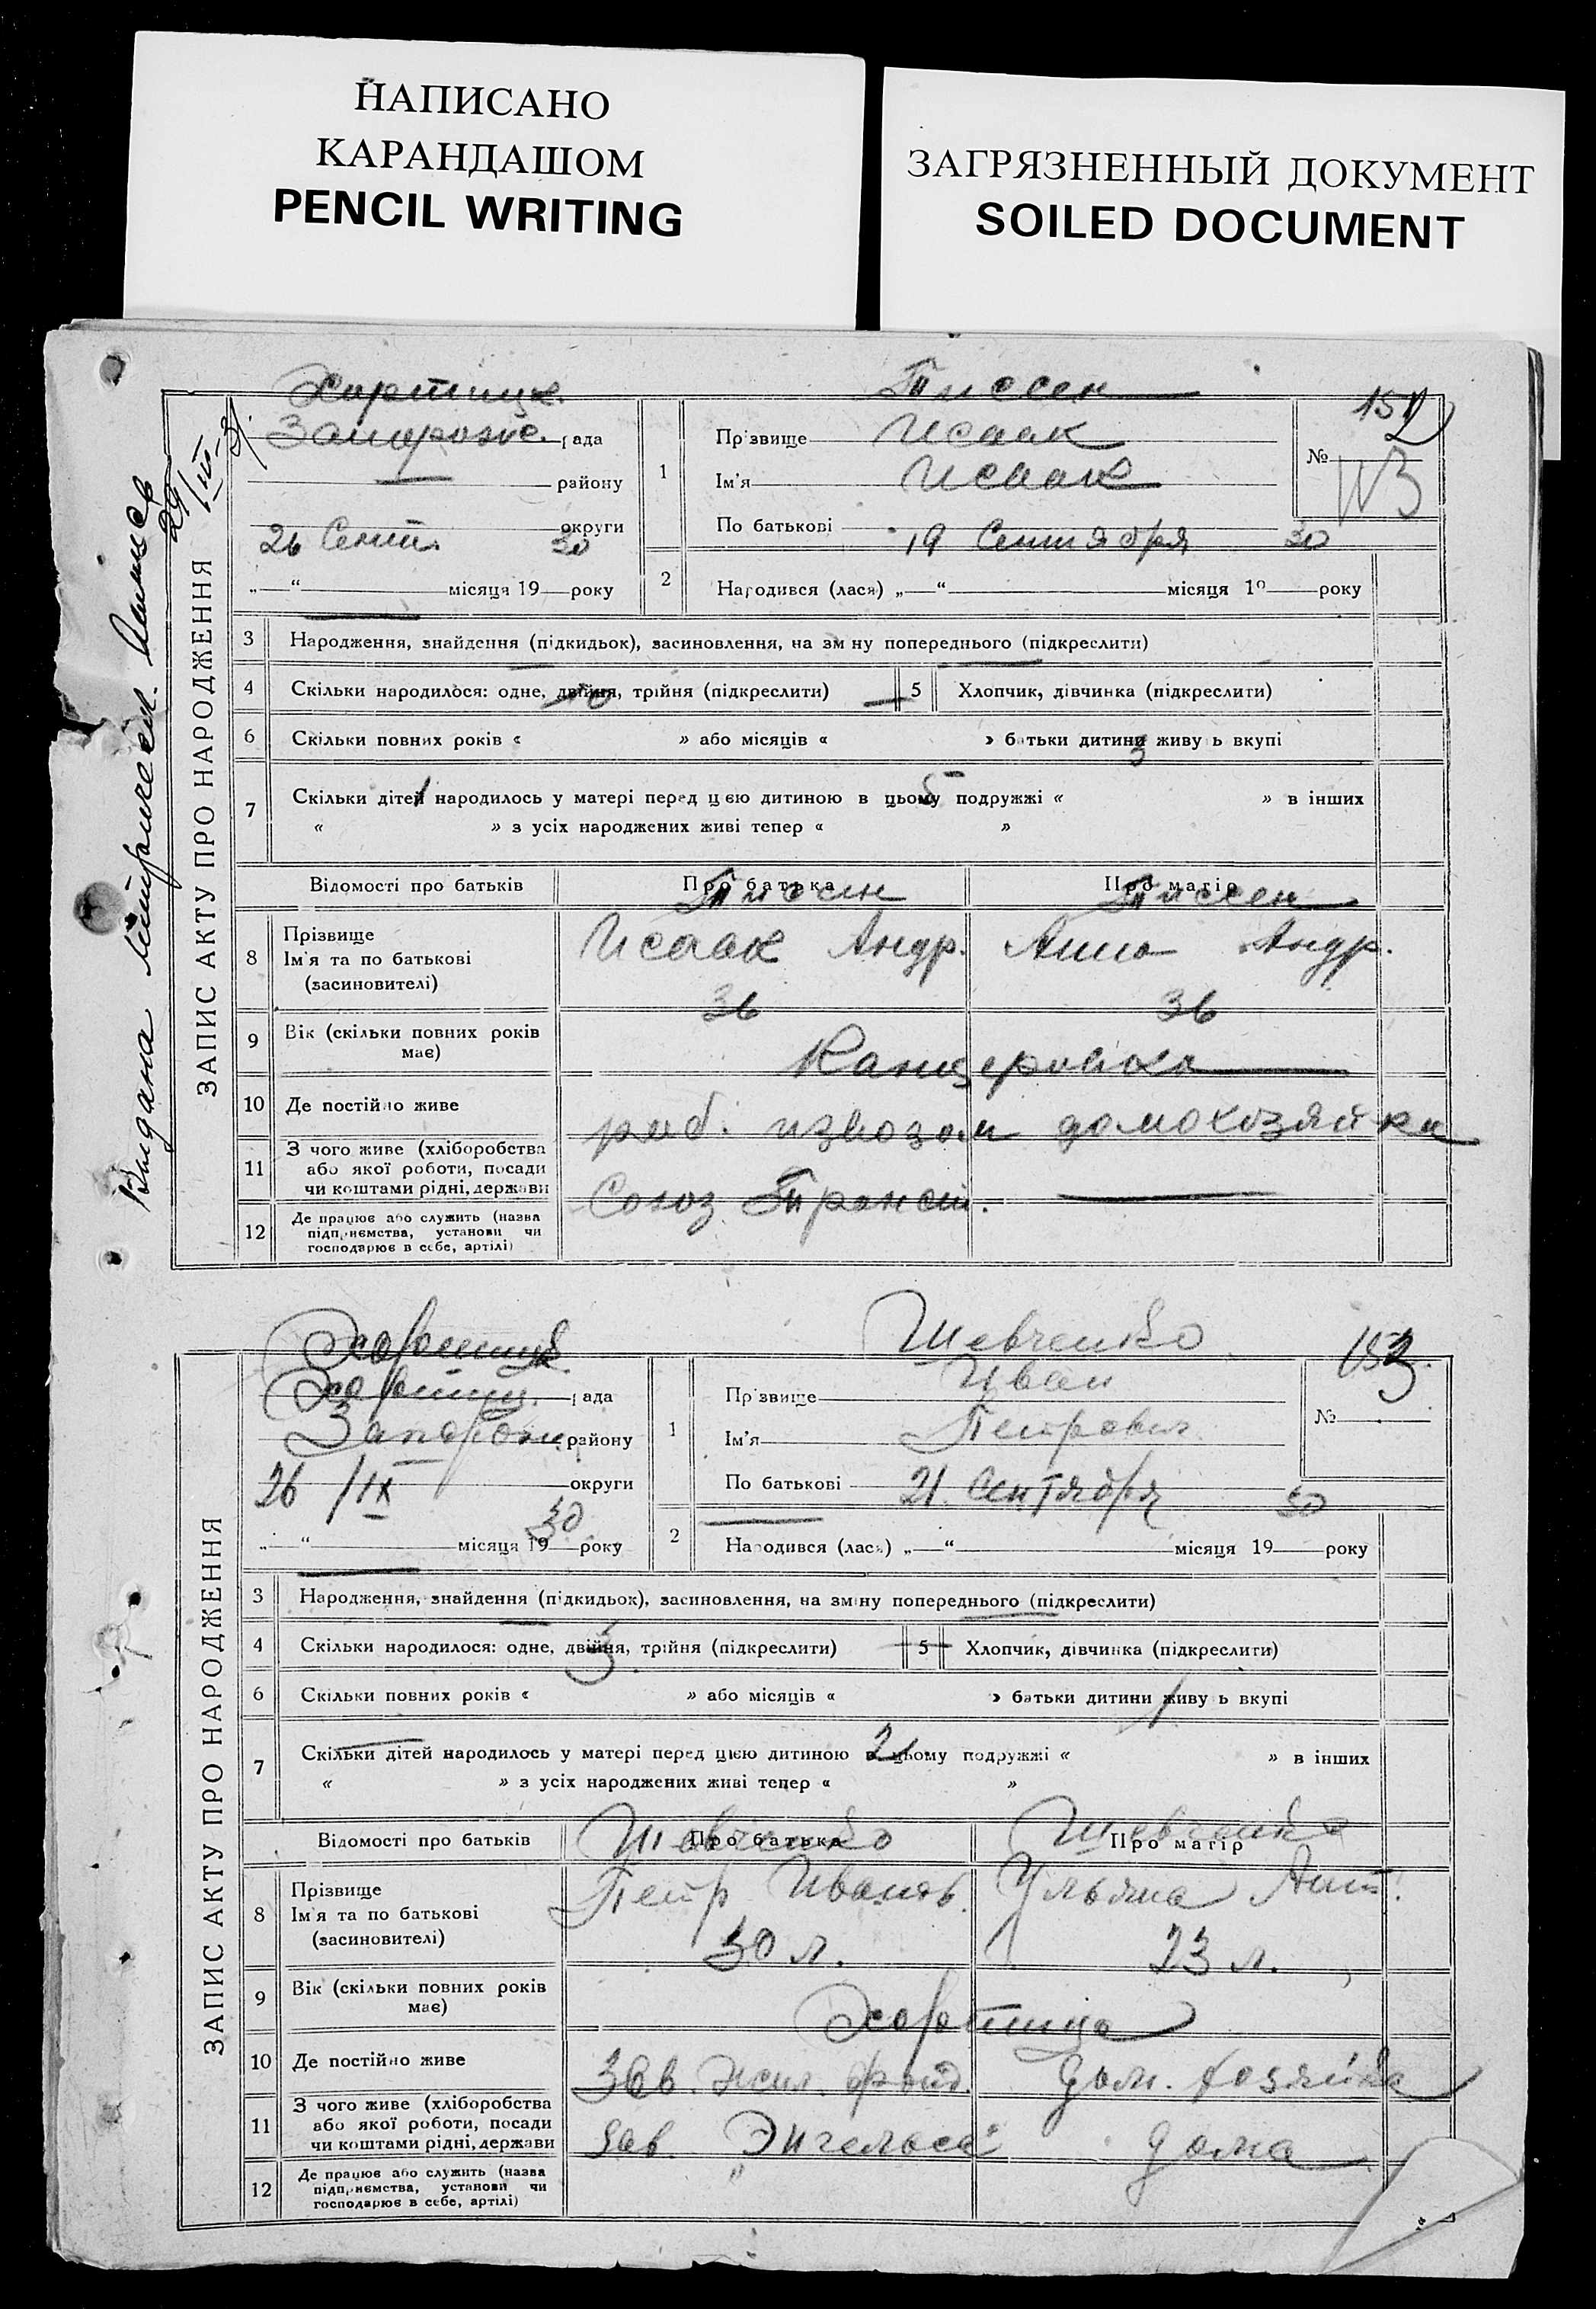 НАПИСАНО
КАРАНДАШОМ
PENCIL WRITING
ЗАГРЯЗНЕННЫЙ ДОКУМЕНТ
SOILED DOCUMENT
ЗАПИС АКТУ ПРО НАРОДЖЕННЯ
Видана метрическ. выпись
29/III-31
Хортицк.
Запорожс. рада
району
округи
26 Сент. 30
„—“ місяця 19 року
1
Тиссен
Прізвище Исаак
Ім'я Исаак
По батькові
№ 152
2
19 Сентября 30
Народився (лася) „—“ місяця 19 року
3 Народження, знайдення (підкидьок), засиновлення, на зміну попереднього (підкреслити)
4 Скільки народилося: одне, двійня, трійня (підкреслити) 5 Хлопчик, дівчинка (підкреслити)
10
6 Скільки повних років « » або місяців « » батьки дитини живуть вкупі
3
7 Скільки дітей народилось у матері перед цією дитиною в цьому подружжі « » в інших
1 5
« » з усіх народжених живі тепер « »
Відомості про батьків Про батька Про матір
Тиссен Тиссен
8 Прізвище
Ім'я та по батькові
(засиновителі)
Исаак Андр. Анна Андр.
36 36
9 Вік (скільки повних років
має)
Канцеровка
10 Де постійно живе
раб. извозом домохозяйка
11 З чого живе (хліборобства
або якої роботи, посади
чи коштами рідні, держави
Союз Трансп.
12 Де працює або служить (назва
підприємства, установи чи
господарює в себе, артілі)
ЗАПИС АКТУ ПРО НАРОДЖЕННЯ
Хортицк
Хортиц. рада
Запорож. району
26/IX округи
30
„—“ місяця 19 року
1
Шевченко
Прізвище Иван
Ім'я Петрович
По батькові
№ 153
2
21 Сентября 30
Народився (лася) „—“ місяця 19 року
3 Народження, знайдення (підкидьок), засиновлення, на зміну попереднього (підкреслити)
4 Скільки народилося: одне, двійня, трійня (підкреслити) 5 Хлопчик, дівчинка (підкреслити)
3
6 Скільки повних років « » або місяців « » батьки дитини живуть вкупі
1
7 Скільки дітей народилось у матері перед цією дитиною в цьому подружжі « » в інших
2
« » з усіх народжених живі тепер « »
Відомості про батьків Про батька Про матір
Шевченко Шевченко
8 Прізвище
Ім'я та по батькові
(засиновителі)
Петр Иванов. Ульяна Ант.
30 л. 23 л.
9 Вік (скільки повних років
має)
Хортица
10 Де постійно живе
Зав. жил. фонд. дом. хозяйка
11 З чого живе (хліборобства
або якої роботи, посади
чи коштами рідні, держави
Зав. Энгельса дома
12 Де працює або служить (назва
підприємства, установи чи
господарює в себе, артілі)